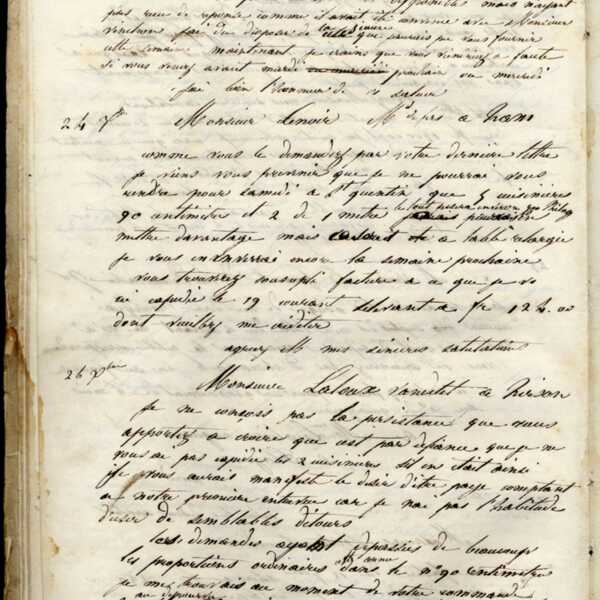 pas reçu de reponse comme il avait été convenu avec Monsieur
cette semaine maintenant je crains que vous viendrez a faute
si vous veniez avant mardi prochain ou mercredi
fai bien l'honneur de v saluer
24 Xbre Monsieur Lenoir Md de fers a Ham
comme vous le demandez par votre dernière lettre
je viens vous prevenir que je ne pourrai vous
rendre pour Samedi a St quentin que 5 cuisinières
90 centimètres et 2 de 1 mètre le tout pesera environ
mettre davantage mais a table elargie
je vous en enverrai encore la semaine prochaine
vous trouverez sousplis facture a ce que je vo
ai expedié le 19 courant s'elevant a fr 124.00
dont veuillez me créditer
agreez M mes sincères salutations
26 Xbre
Monsieur Laloux a
je ne conçois pas la persistance que vous
apportez a croire que c'est par defiance que je ne
vous ai pas expedié les 2 cuisinières s'il en était ainsi
je vous aurais manifesté le desir d'être payé comptant
a notre première entrevue car je nai pas l'habitude
d'user de semblables détours
les demandes ayant depassées de beaucoup
les proportions ordinaires dans le no 90 centimètres
je me trouvais au moment de votre commande
au depourvu